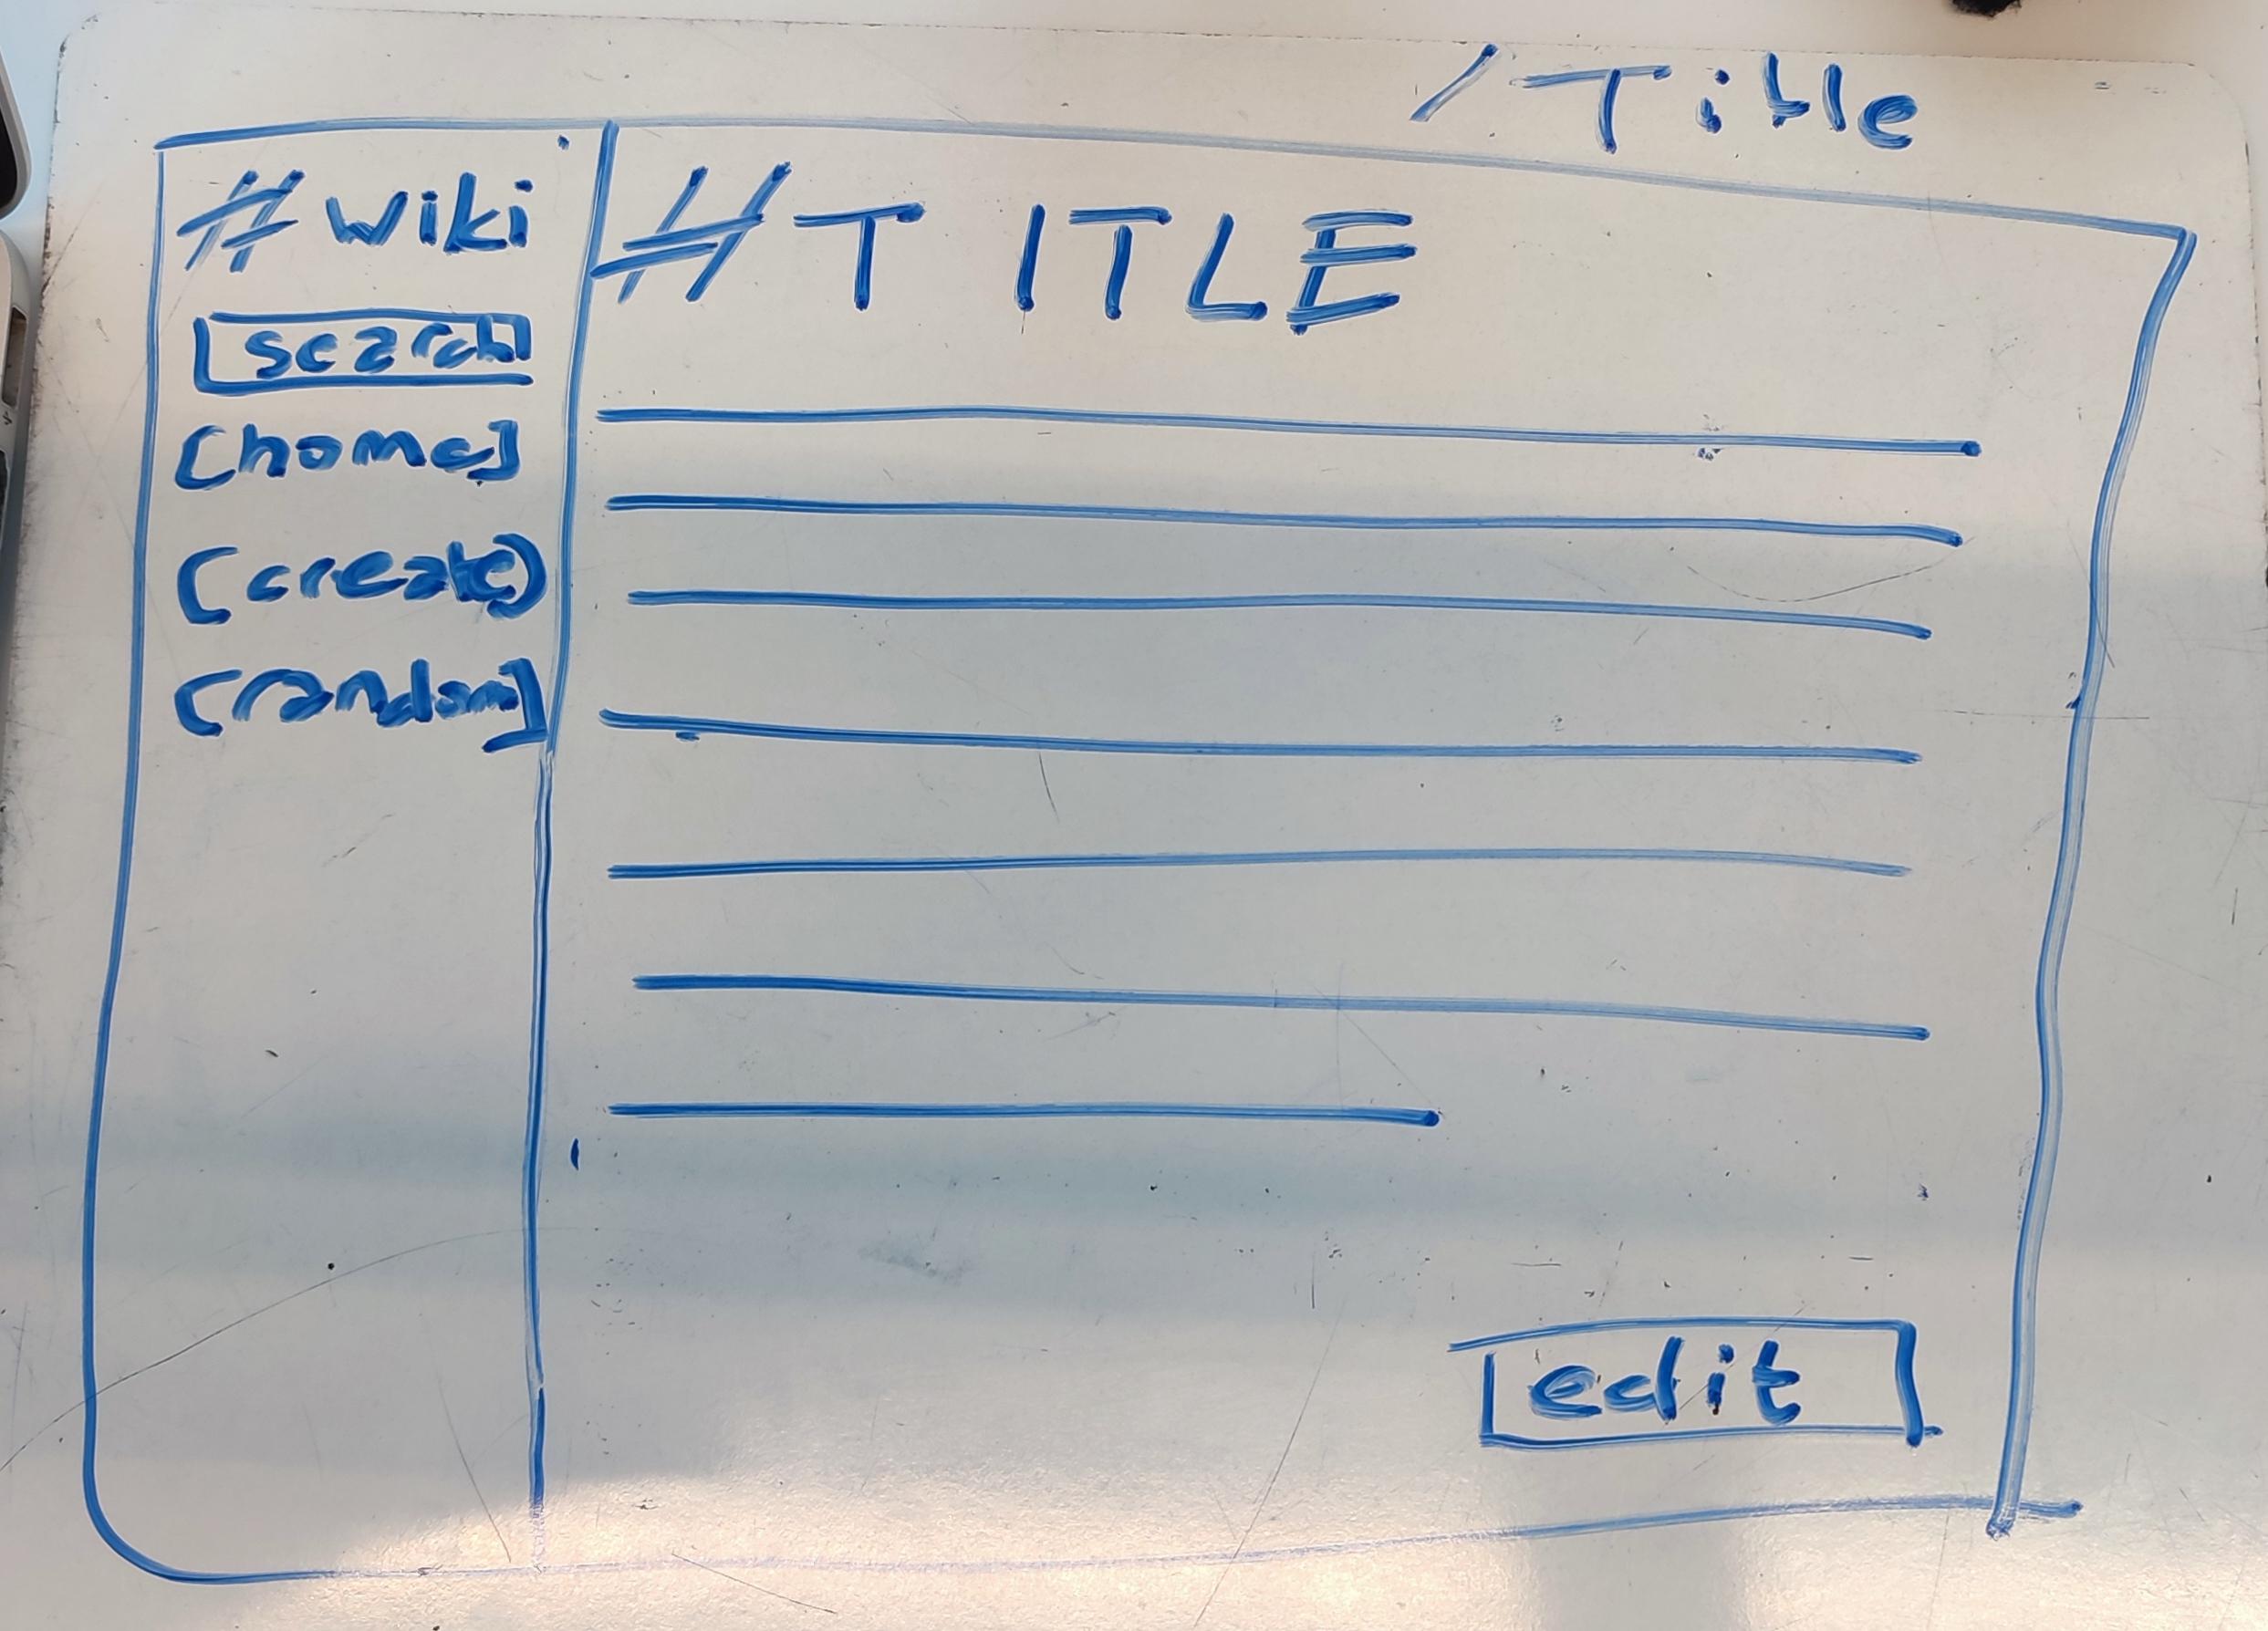 /Title
# wiki
search
[home]
(create)
[random]
# TITLE
edit